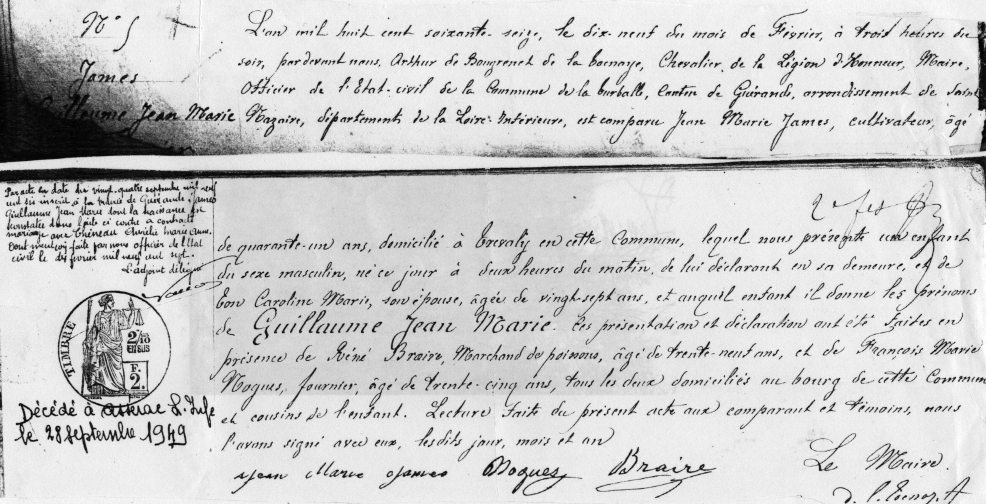 N° 5
James
Guillaume Jean Marie
L'an mil huit cent soixante-seize, le dix-neuf du mois de Février, à trois heures du
soir, pardevant nous, Arthur de Bougrenet de la Tocnaye, Chevalier de la Légion d'Honneur, Maire,
Officier de l'Etat-civil de la Commune de la Turballe, Canton de Guérande, arrondissement de Saint
Nazaire, département de la Loire-Inférieure, est comparu Jean Marie James, cultivateur, âgé
Par acte en date du vingt-quatre septembre mil neuf
cent six inscrit à la mairie de Guérande James
Guillaume Jean Marie dont la naissance est
constatée dans l'acte ci contre a contracté
mariage avec Théneau Aurélie Marie
Dont mention faite par nous officier de l'état
civil le dix février mil neuf cent sept.
L'adjoint délégué
2e fes
de quarante-un ans, domicilié à Trevaly en cette Commune, lequel nous présente un enfant
du sexe masculin, né ce jour à deux heures du matin, de lui déclarant en sa demeure, et de
Eon Caroline Marie, son épouse, âgée de vingt-sept ans, et auquel enfant il donne les prénoms
de Guillaume Jean Marie. Ces présentation et déclaration ont été faites en
présence de Réné Braire, Marchand de poissons, âgé de trente-neuf ans, et de François Marie
Nogues, fournier, âgé de trente-cinq ans, tous les deux domiciliés au bourg de cette Commune
et cousins de l'enfant. Lecture faite du présent acte aux comparant et témoins, nous
l'avons signé avec eux, lesdits jour, mois et an
TIMBRE
2/10
EN SUS
F.
2.
Décédé à Assérac L. Infe
le 28 septembre 1949
Jean Marie James Nogues Braire
Le Maire